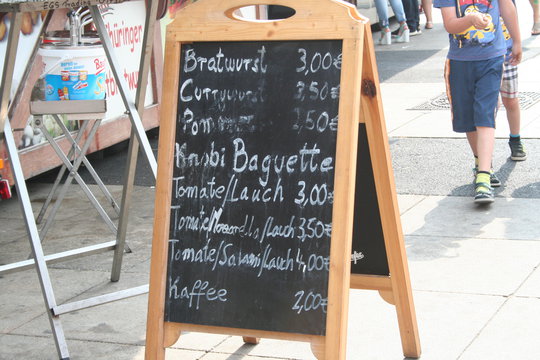 Bratwurst 3,00€
Currywurst 3,50€
Pommes 2,50€
Knobi Baguette
Tomate/Lauch 3,00€
Tomate/Mozzarella/Lauch 3,50€
Tomate/Salami/Lauch 4,00€
Kaffee 2,00€
Thüringer